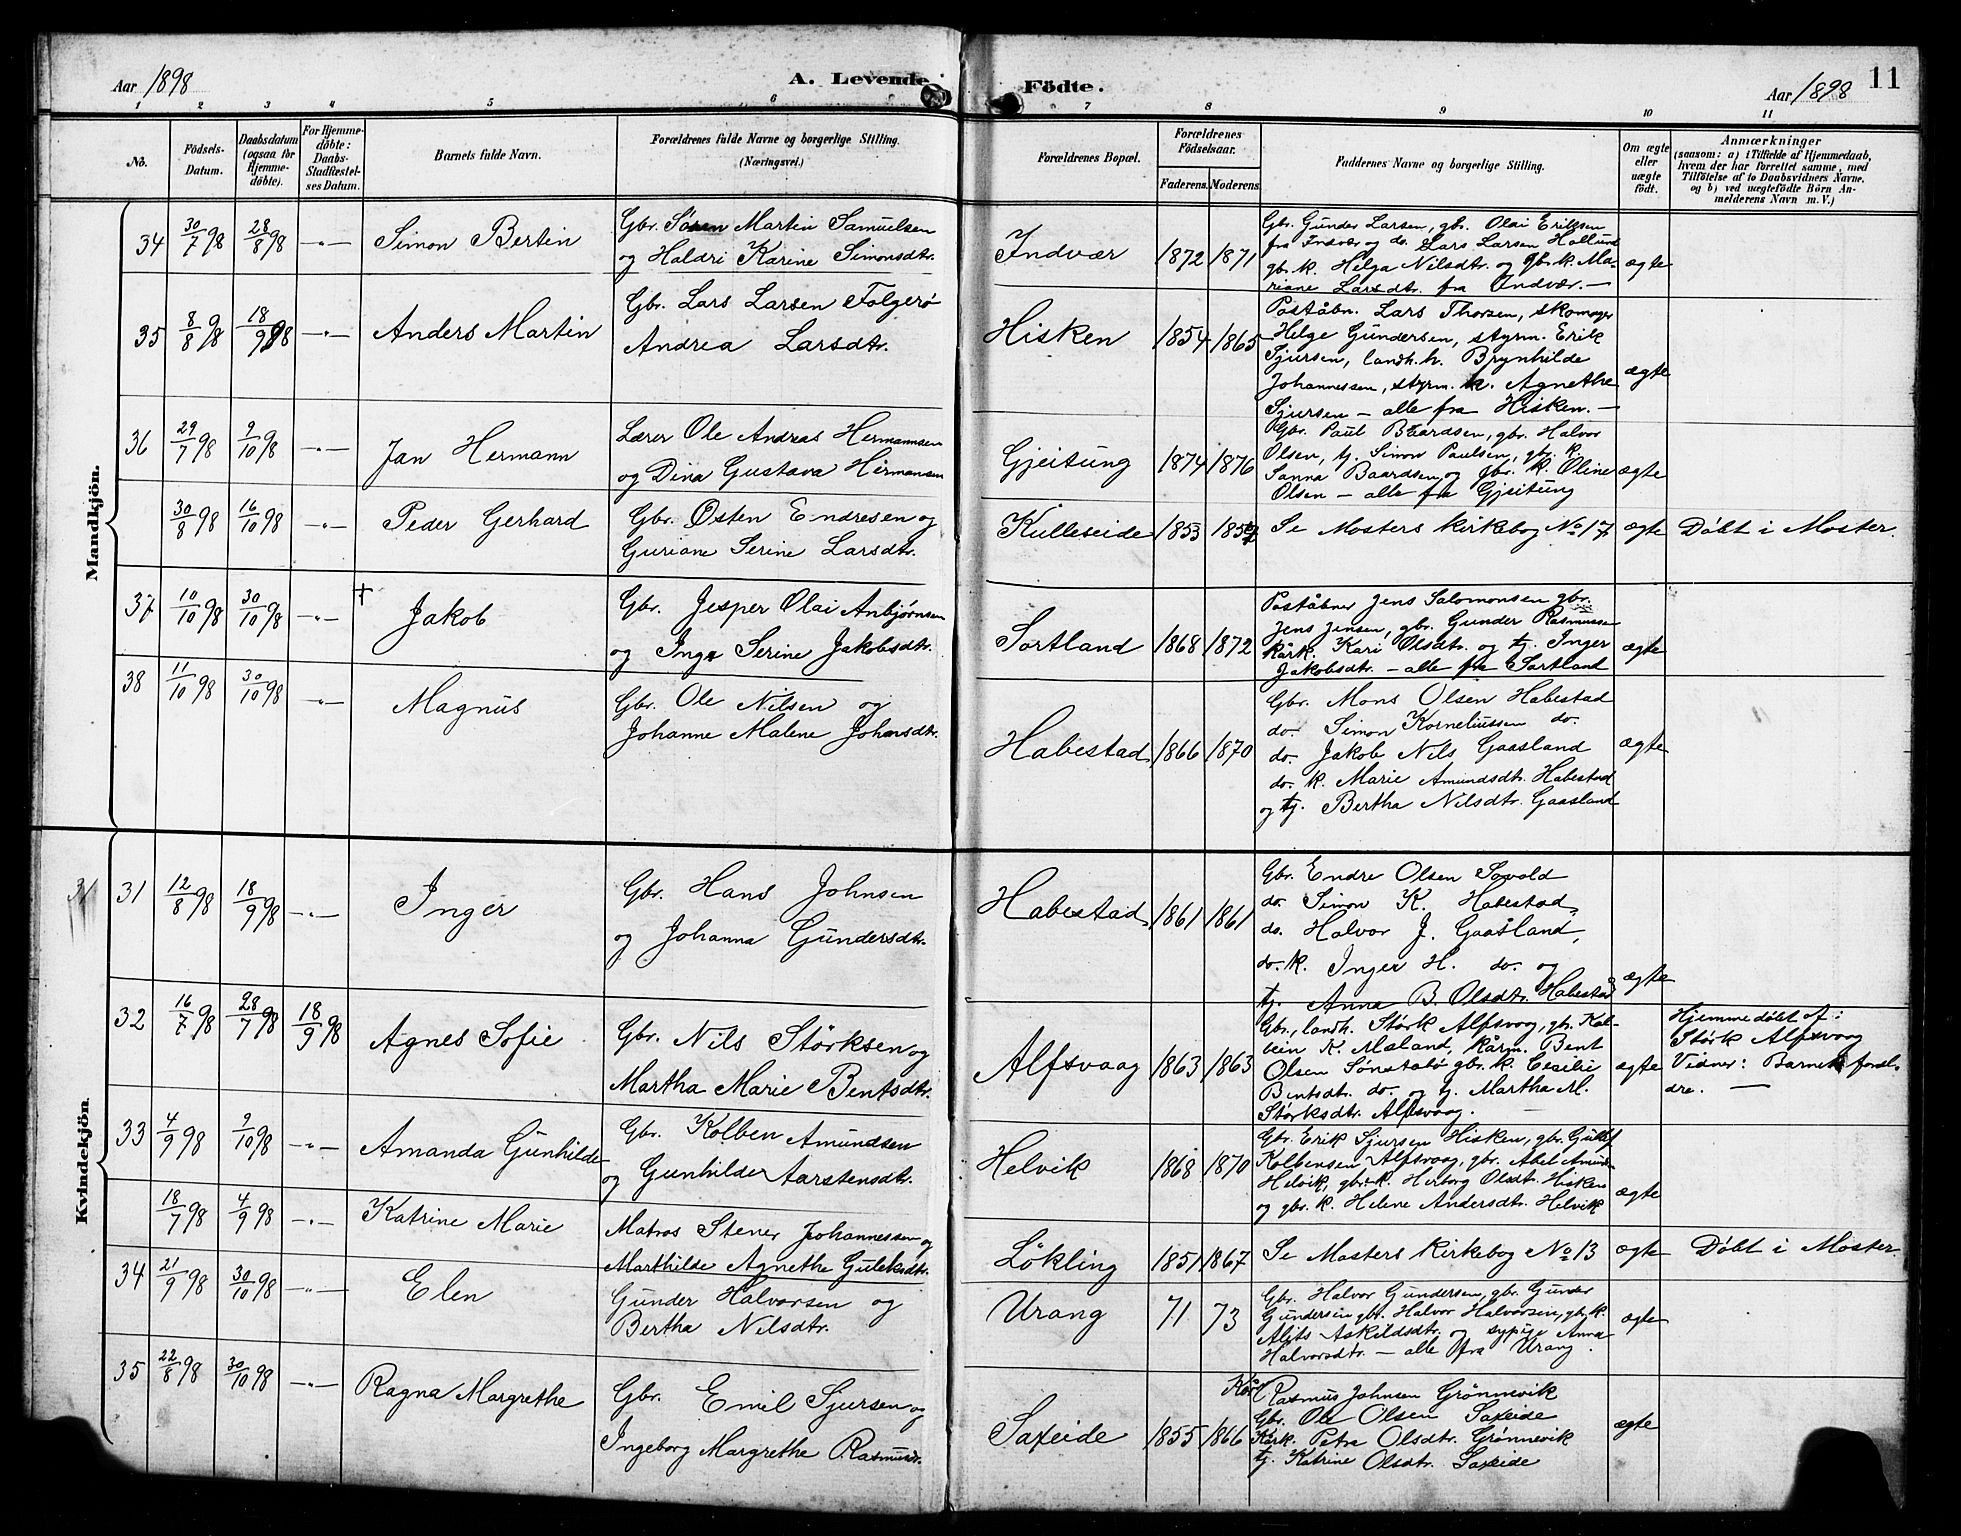 Aar 1898
A. Levende Födte.
Aar 1898
11
1 2 3 4 5 6 7 8 9 10 11
No.
Födsels-Datum.
Daabsdatum (ogsaa for Hjemme-döbte).
For Hjemme-döbte: Daabs-Stadfæstel-ses Datum.
Barnets fulde Navn.
Forældrenes fulde Navne og borgerlige Stilling. (Næringsvei.)
Forældrenes Bopæl.
Forældrenes Födselsaar.
Faderens. Moderens.
Faddernes Navne og borgerlige Stilling.
Om ægte eller uægte födt.
Anmærkninger
(saasom: a) i Tilfælde af Hjemmedaab,
hvem der har forrettet samme, med
Tilföielse af to Daabsvidners Navne,
og b) ved uægtefödte Börn An-
melderens Navn m. V.)
Mandkjön.
34 30/7 98 28/8 98 -"- Simon Bertin
Gbr. Søren Martin Samuelsen
og Haldri Karine Simonsdtr.
Indvær 1872 1871
Gbr. Gunder Larsen, gbr. Olai Eriksen
fra Indvær og do. Lars Larsen Hollund
gbr. k. Helga Nilsdtr. og gbr. k. Ma-
riane Larsdtr. fra Indvær. —
ægte
35 8/8 98 18/9 98 -"- Anders Martin
Gbr. Lars Larsen Folgerø
Andrea Larsdtr.
Hisken 1854 1865
Poståbn. Lars Thorsen, skomager
Helge Gundersen, styrm. Erik
Sjursen, landh. h. Brynhilde
Johannessen, styrm. k. Agnethe
Sjursen — alle fra Hisken. —
ægte
36 29/7 98 9/10 98 -"- Jan Hermann
Lærer Ole Andreas Hermannsen
og Dina Gustava Hermansen
Gjeitung 1874 1876
Gbr. Paul Baardsen, gbr. Halvor
Olsen, tj. Simon Paulsen, gbr. k.
Sanna Baardsen og gbr. k. Oline
Olsen — alle fra Gjeitung
ægte
30/8 98 16/10 98 -"- Peder Gerhard
Gbr. Østen Endresen og
Guriane Serine Larsdtr.
Kulleseide 1853
Se Mosters kirkebog No 17
ægte
Døbt i Moster.
37 10/10 98 30/10 98 -"- † Jakob
Gbr. Jesper Olai Anbjørnsen
og Inga Serine Jakobsdtr.
Sortland 1868 1872
Poståbner Jens Salomonsen gbr.
Jens Jensen, gbr. Gunder Rasmussen
kårk. Kari Olsdtr. og tj. Inger
Jakobsdtr. — alle fra Sortland
ægte
38 11/10 98 30/10 98 -"- Magnus
Gbr. Ole Nilsen og
Johanne Malene Johansdtr.
Habestad 1866 1870
Gbr. Mons Olsen Habestad
do. Simon Korneliussen do.
do. Jakob Nils Gaasland
do. k. Marie Amundsdtr. Habestad
og tj. Bertha Nilsdtr. Gaasland
ægte
Kvindekjön.
31 31 12/8 98 18/9 98 -"- Inger
Gbr. Hans Johnsen
og Johanna Gundersdtr.
Habestad 1861 1861
Gbr. Endre Olsen Sovold
do. Simon K. Habestad,
do. Halvor J. Gaasland,
do. k. Inger H. do. og
tj. Anna B. Olsdtr. Habestad
ægte
32 16/7 98 28/7 98 18/9 98 Agnes Sofie
Gbr. Nils Størksen og
Martha Marie Bentsdtr.
Alfsvaag 1863 1863
Gbr., landh. Størk Alfsvaag, gbr. Kol-
bein K. Mæland, kårm. Bent
Olsen Sønstabø gbr. k. Cecilie
Bentsdtr. do. og tj. Martha M.
Størksdtr. Alfsvaag.
ægte
Hjemmedøbt af:
Størk Alfsvaag
Vidner: Barnets foræl-
dre. —
33 4/9 98 9/10 98 -"- Amanda Gunhilde
Gbr. Kolben Amundsen
og Gunhilde Aarstensdtr.
Helvik 1868 1870
Gbr. Erik Sjursen Hisken, gbr. Gullef
Kolbensen Alfsvaag, gbr. Abel Amund-
Helvik, gbr. k. Herborg Olsdtr. Hisken
og gbr. k. Helene Andersdtr. Helvik
ægte
18/7 98 4/9 98 -"- Katrine Marie
Matros Stener Johannessen og
Marthilde Agnethe Guleksdtr.
Lökling 1851 1867
Se Mosters Kirkebog No 13
ægte
Døbt i Moster
34 21/9 98 30/10 98 -"- Elen
Gunder Halvorsen og
Bertha Nilsdtr.
Urang 71 73
Gbr. Halvor Gundersen, gbr. Gunder
Gundersen gbr. Halvor Halvorsen, gbr. k.
Alits Askildsdtr. og sypige Anna
Halvorsdtr. — alle fra Urang.
ægte
35 22/8 98 30/10 98 -"- Ragna Margrethe
Gbr. Emil Sjursen og
Ingeborg Margrethe Rasmusdr.
Saxeide 1855 1866
Kår. Rasmus Johnsen Grønnevik
Gbr. Ole Olsen Saxeide
Kårk. Petra Olsdtr. Grønnevik
tj. Katrine Olsdtr. Saxeide
ægte